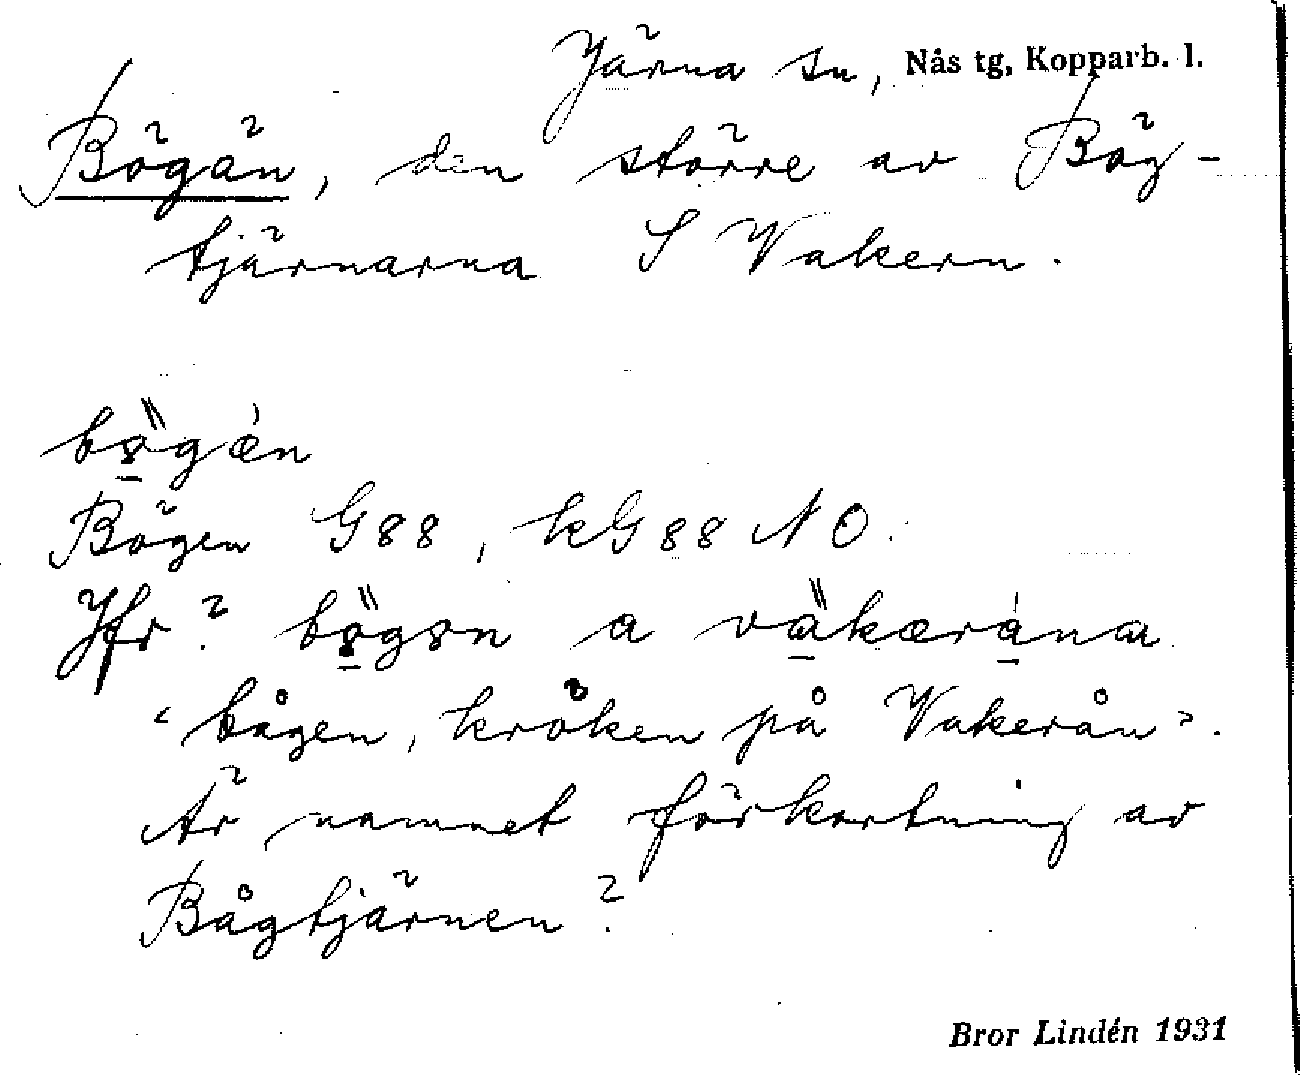 Järna sn, Nås tg, Kopparb. l.
Bögän, den större av Bög-
tjärnarna S Vakern.
bögæ̀n
Bögen G88, kG88 NO.
Jfr? bögən a väkæránα
‘bågen, kröken på Vakerån’.
Är namnet förkortning av
Bågtjärnen?
Bror Lindén 1931